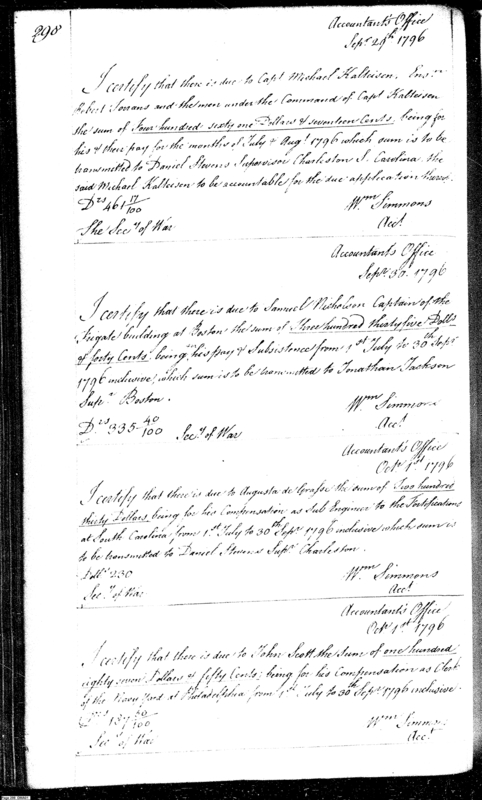 298
Accountants Office
Sepr. 29th 1796
I certify that there is due to Capt Michael Kalteisen, Ensn
Robert Sorrans and the men under the Command of Capt Kalteisen
the sum of Four hundred sixty one Dollars & seventeen Cents, being for
his & their pay for the months of July & Augt 1796 which sum is to be
transmitted to Daniel Stevens Supervisor Charleston S. Carolina, the
said Michael Kalteisen to be accountable for the due application thereof.
Drs 461 17/100
Wm Simmons
Acct
The Secy of War
Accountants Office
Sepr. 30. 1796
I certify that there is due to Samuel Nicholson Captain of the
Frigate building at Boston the sum of Three hundred thirty five Dolls
& forty Cents, being his pay & Subsistence from 1st July to 30th Sepr
1796 inclusive, which sum is to be transmitted to Jonathan Jackson
Supr Boston.
Wm Simmons
Drs 335 40/100 Secy of War
Acct
Accountants Office
Octr 1st 1796
I certify that there is due to Augusta de Grasse the sum of Two hundred
thirty Dollars being for his Compensation as Sub Engineer to the Fortifications
at South Carolina, from 1st July to 30th Sepr 1796 inclusive which sum is
to be transmitted to Daniel Stevens Supr Charleston.
Dolls 230
Wm Simmons
Secy of War
Acct
Accountants Office
Octr 1st 1796
I certify that there is due to John Scott the sum of one hundred
eighty seven Dollars & fifty Cents, being for his Compensation as Clerk
of the Navy Yard at Philadelphia from 1st July to 30th Sepr 1796 inclusive.
Drs 187 50/100
Wm Simmons
Secy of War
Acct